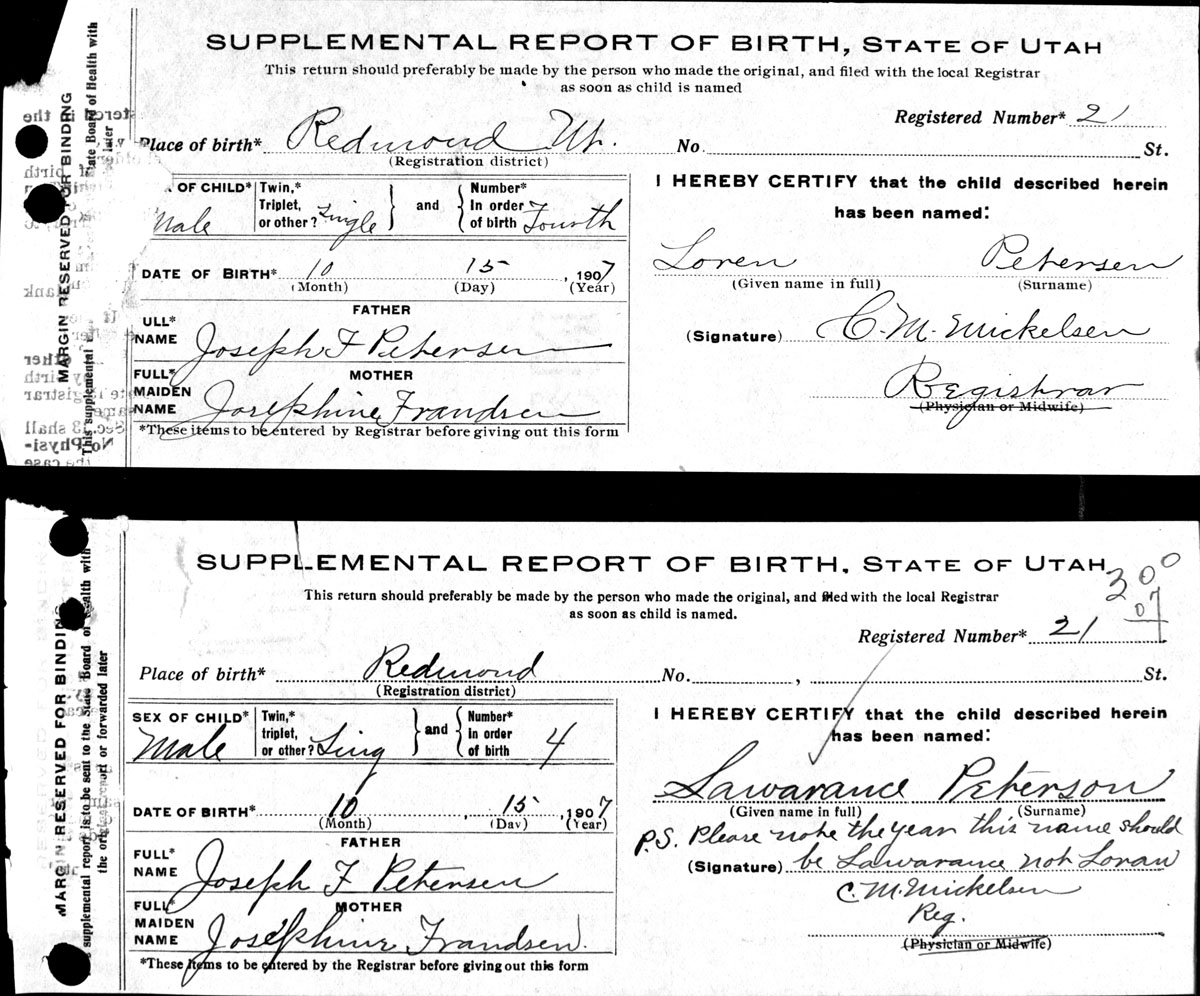 SUPPLEMENTAL REPORT OF BIRTH, STATE OF UTAH
This return should preferably be made by the person who made the original, and filed with the local Registrar
as soon as child is named
Registered Number* 21
Place of birth* Redmond Ut. No. St.
(Registration district)
OF CHILD* Male
Twin,* Triplet, or other? Single
and
Number* In order of birth Fourth
DATE OF BIRTH* 10 15, 1907
(Month) (Day) (Year)
FATHER
ULL* NAME Joseph F Petersen
MOTHER
FULL* MAIDEN NAME Josephine Frandsen
*These items to be entered by Registrar before giving out this form
I HEREBY CERTIFY that the child described herein
has been named:
Loren Petersen
(Given name in full) (Surname)
(Signature) C. M. Mickelsen
Registrar
(Physician or Midwife)
MARGIN RESERVED FOR BINDING
This supplemental
ate Board of Health with
later
SUPPLEMENTAL REPORT OF BIRTH, STATE OF UTAH
300
07
This return should preferably be made by the person who made the original, and filed with the local Registrar
as soon as child is named.
Registered Number* 21
Place of birth* Redmond No. , St.
(Registration district)
SEX OF CHILD* Male
Twin,* triplet, or other? Sing
and
Number* In order of birth 4
DATE OF BIRTH* 10, 15, 1907
(Month) (Day) (Year)
FATHER
FULL* NAME Joseph F Petersen
MOTHER
FULL* MAIDEN NAME Josephine Frandsen.
*These Items to be entered by the Registrar before giving out this form
I HEREBY CERTIFY that the child described herein
has been named:
Lawarance Peterson
(Given name in full) (Surname)
P.S. Please note the year this name should
(Signature) be Lawarance not Loran
C. M. Mickelsen
Reg.
(Physician or Midwife)
MARGIN RESERVED FOR BINDING
supplemental report is to be sent to the State Board of Health with
the original report or forwarded later